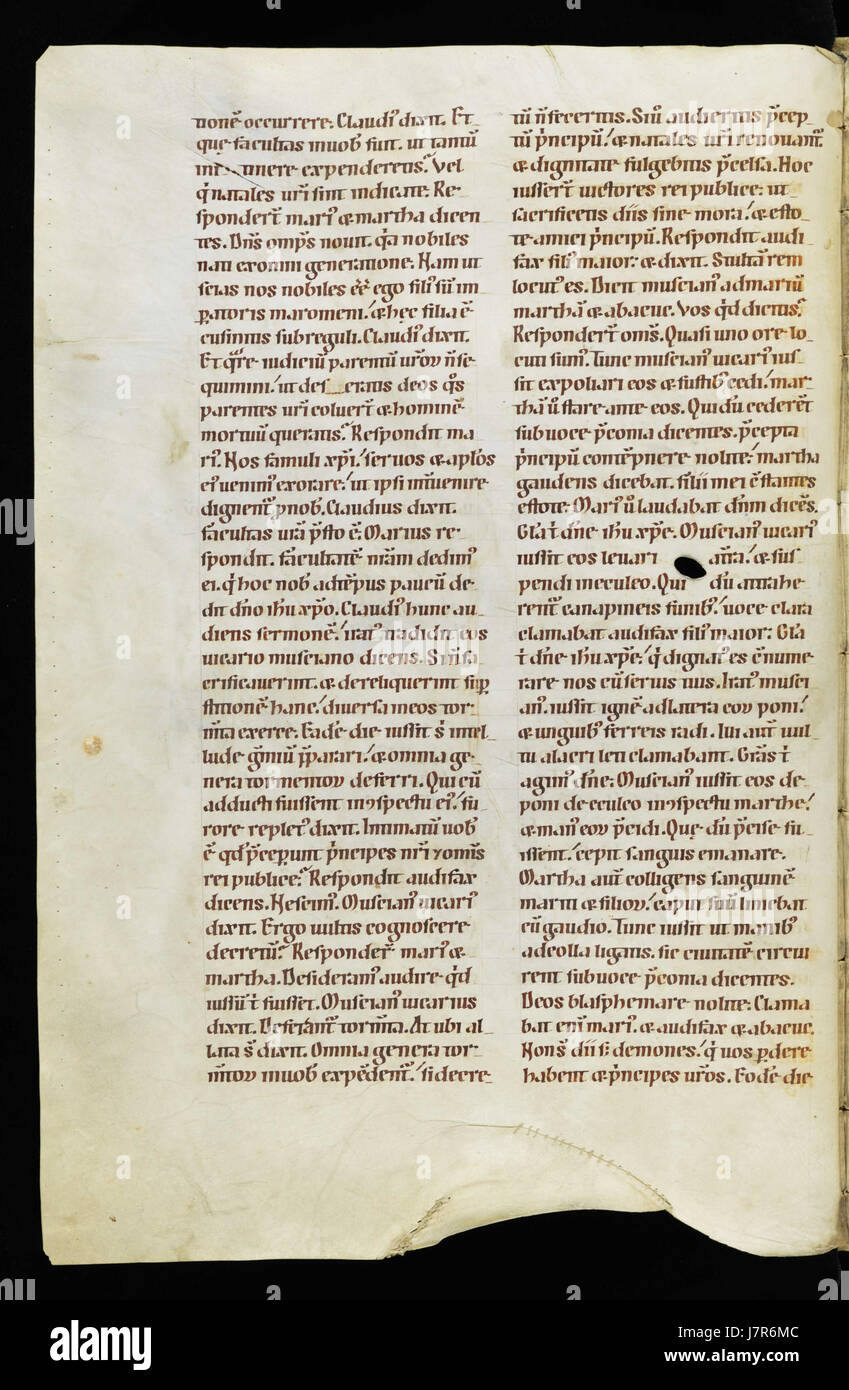 tionē occurrere. Claudiꝰ dixit. Et
que facultas in uob̄ sunt. ut tantū
tinere expenderetis? Vel
q̄ natales ur̄i sint indicate. Re-
sponder̄t mariꝰ & martha dicen
tes. Dn̄s omp̄s nouit. q̄a nobiles
nati ex omni generatione. Nam ut
scias nos nobiles eē. ego filiꝰ sū im
ꝑatoris maromeni. & hęc filia ē
cusinitis subreguli. Claudiꝰ dixit.
Et q̄re iudiciū parentū ur̄oꝝ n̄ se-
quimini. ut des_eratis deos q̄s
parentes ur̄i coluer̄t & hominē
mortuū queratis? Respondit ma
riꝰ. Nos famuli xp̄i. seruos & aplōs
eiꝰ uenimꝰ exorare. ut ipsi inuenire
dignent̄ p nob̄. Claudius dixit.
facultas ur̄a p̄sto ē. Marius re-
spondit. facultatē nr̄am dedimꝰ
ei. q̄ hoc nob̄ ad tēpus paucū de-
dit dn̄o ih̄u xp̄o. Claudiꝰ hunc au-
diens sermonē. iratꝰ tradidit eos
uicario musciano dicens. Si n̄ sa
crificauerint. & dereliquerint suꝑ
stitionē hanc. diuersa in eos tor-
m̄ta exerce. Eadē die iussit s̄ intel_
lude gm̄iū p̄parari. & omnia ge-
nera tormentoꝝ deferri. Qui cū
adducti fuissent in ɔspectu eiꝰ. fu
rore repletꝰ dixit. Intimatū uob̄
ē qd̄ p̄ceperunt p̄ncipes nr̄i romis
rei publice? Respondit audifax
dicens. Nescimꝰ. Muscianꝰ uicariꝰ
dixit. Ergo uultis cognoscere
decretū? Responder̄ mariꝰ &
martha. Desideramꝰ audire qd̄
iussū t̄ fuisset. Muscianꝰ uicarius
dixit. Deferant̄ torm̄ta. At ubi al_
lata s̄ dixit. Omnia genera tor-
m̄toꝝ in uob̄ expēdent̄. si decre_
tū n̄ feceritis. Si ū audieritis p̄cep_
tū p̄ncipū. & natales ur̄i renouant̄
& dignitate fulgebitis p̄celsa. Hoc
iusser̄t uictores rei publice. ut
sacrificetis diis sine mora. & esto_
te amici p̄ncipū. Respondit audi
fax filiꝰ maior. & dixit. Stultā rem
locutꝰ es. Dicit muscianꝰ ad mariū
marthā & abacuc. Vos qd̄ dicitis?
Responder̄t om̄s. Quasi uno ore lo-
cuti sumꝰ. Tunc muscianꝰ uicariꝰ ius_
sit expoliari eos & fustibꝰ cedi. mar-
thā ū stare ante eos. Qui dū cederēt
sub uoce p̄conia dicentes. p̄cepta
p̄ncipū contēpnere nolite. martha
gaudens dicebat. filii mei ɔstantes
estote. Mariꝰ ū laudabat dn̄m dicēs.
Glā t̄ dn̄e ih̄u xp̄e. Muscianꝰ uicariꝰ
iussit eos leuari a tr̄a. & sus_
pendi in eculeo. Qui dū attrahe-
rent̄ canapineis funibꝰ. uoce clara
clamabat audifax filiꝰ maior. Glā
t̄ dn̄e ih̄u xp̄e. q̄ dignatꝰ es ɔnume-
rare nos cū seruis tuis. Iratꝰ musci
anꝰ. iussit ignē ad latera eoꝝ poni.
& unguibꝰ ferreis radi. Illi aut̄ uul_
tu alacri leti clamabant. Grās t̄
agimꝰ dn̄e. Muscianꝰ iussit eos de-
poni de eculeo in ɔspectu marthe.
& manꝰ eoꝝ p̄cidi. Que dū p̄cise fu_
issent. cepit sanguis emanare.
Martha aut̄ colligens sanguinē
mariti & filioꝝ. caput suū linebat
cū gaudio. Tunc iussit ut manibꝰ
ad colla ligatis. sic ciuitatē circui
rent sub uoce p̄conia dicentes.
Deos blasphemare nolite. Clama
bat eni mariꝰ. & audifax & abacuc.
Non s̄ dii sed demones. q̄ uos ꝑdere
habent & p̄ncipes ur̄os. Eodē die
alamy
Image ID: J7R6MC
www.alamy.com